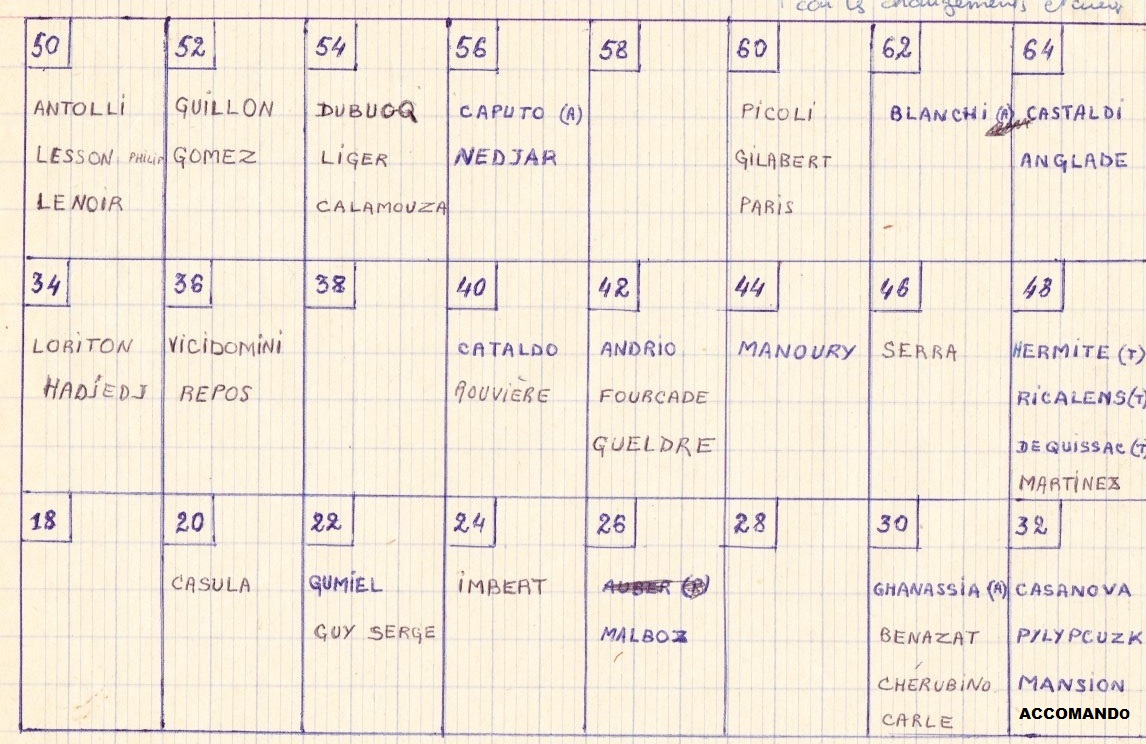 con les changements
50 52 54 56 58 60 62 64
ANTOLLI GUILLON DUBUOQ CAPUTO (A) PICOLI BLANCHI (A) CASTALDI
LESSON PHILIP GOMEZ LIGER NEDJAR GILABERT ANGLADE
LENOIR CALAMOUZA PARIS
34 36 38 40 42 44 46 48
LORITON VICIDOMINI CATALDO ANDRIO MANOURY SERRA HERMITE (T)
HADJEDJ REPOS ROUVIÈRE FOURCADE RICALENS (T)
GUELDRE DE QUISSAC (T)
MARTINEZ
18 20 22 24 26 28 30 32
CASULA GUMIEL IMBERT AUBER (R) GHANASSIA (A) CASANOVA
GUY SERGE MALBOZ BENAZAT PYLYPCUZK
CHÉRUBINO MANSION
CARLE ACCOMANDO